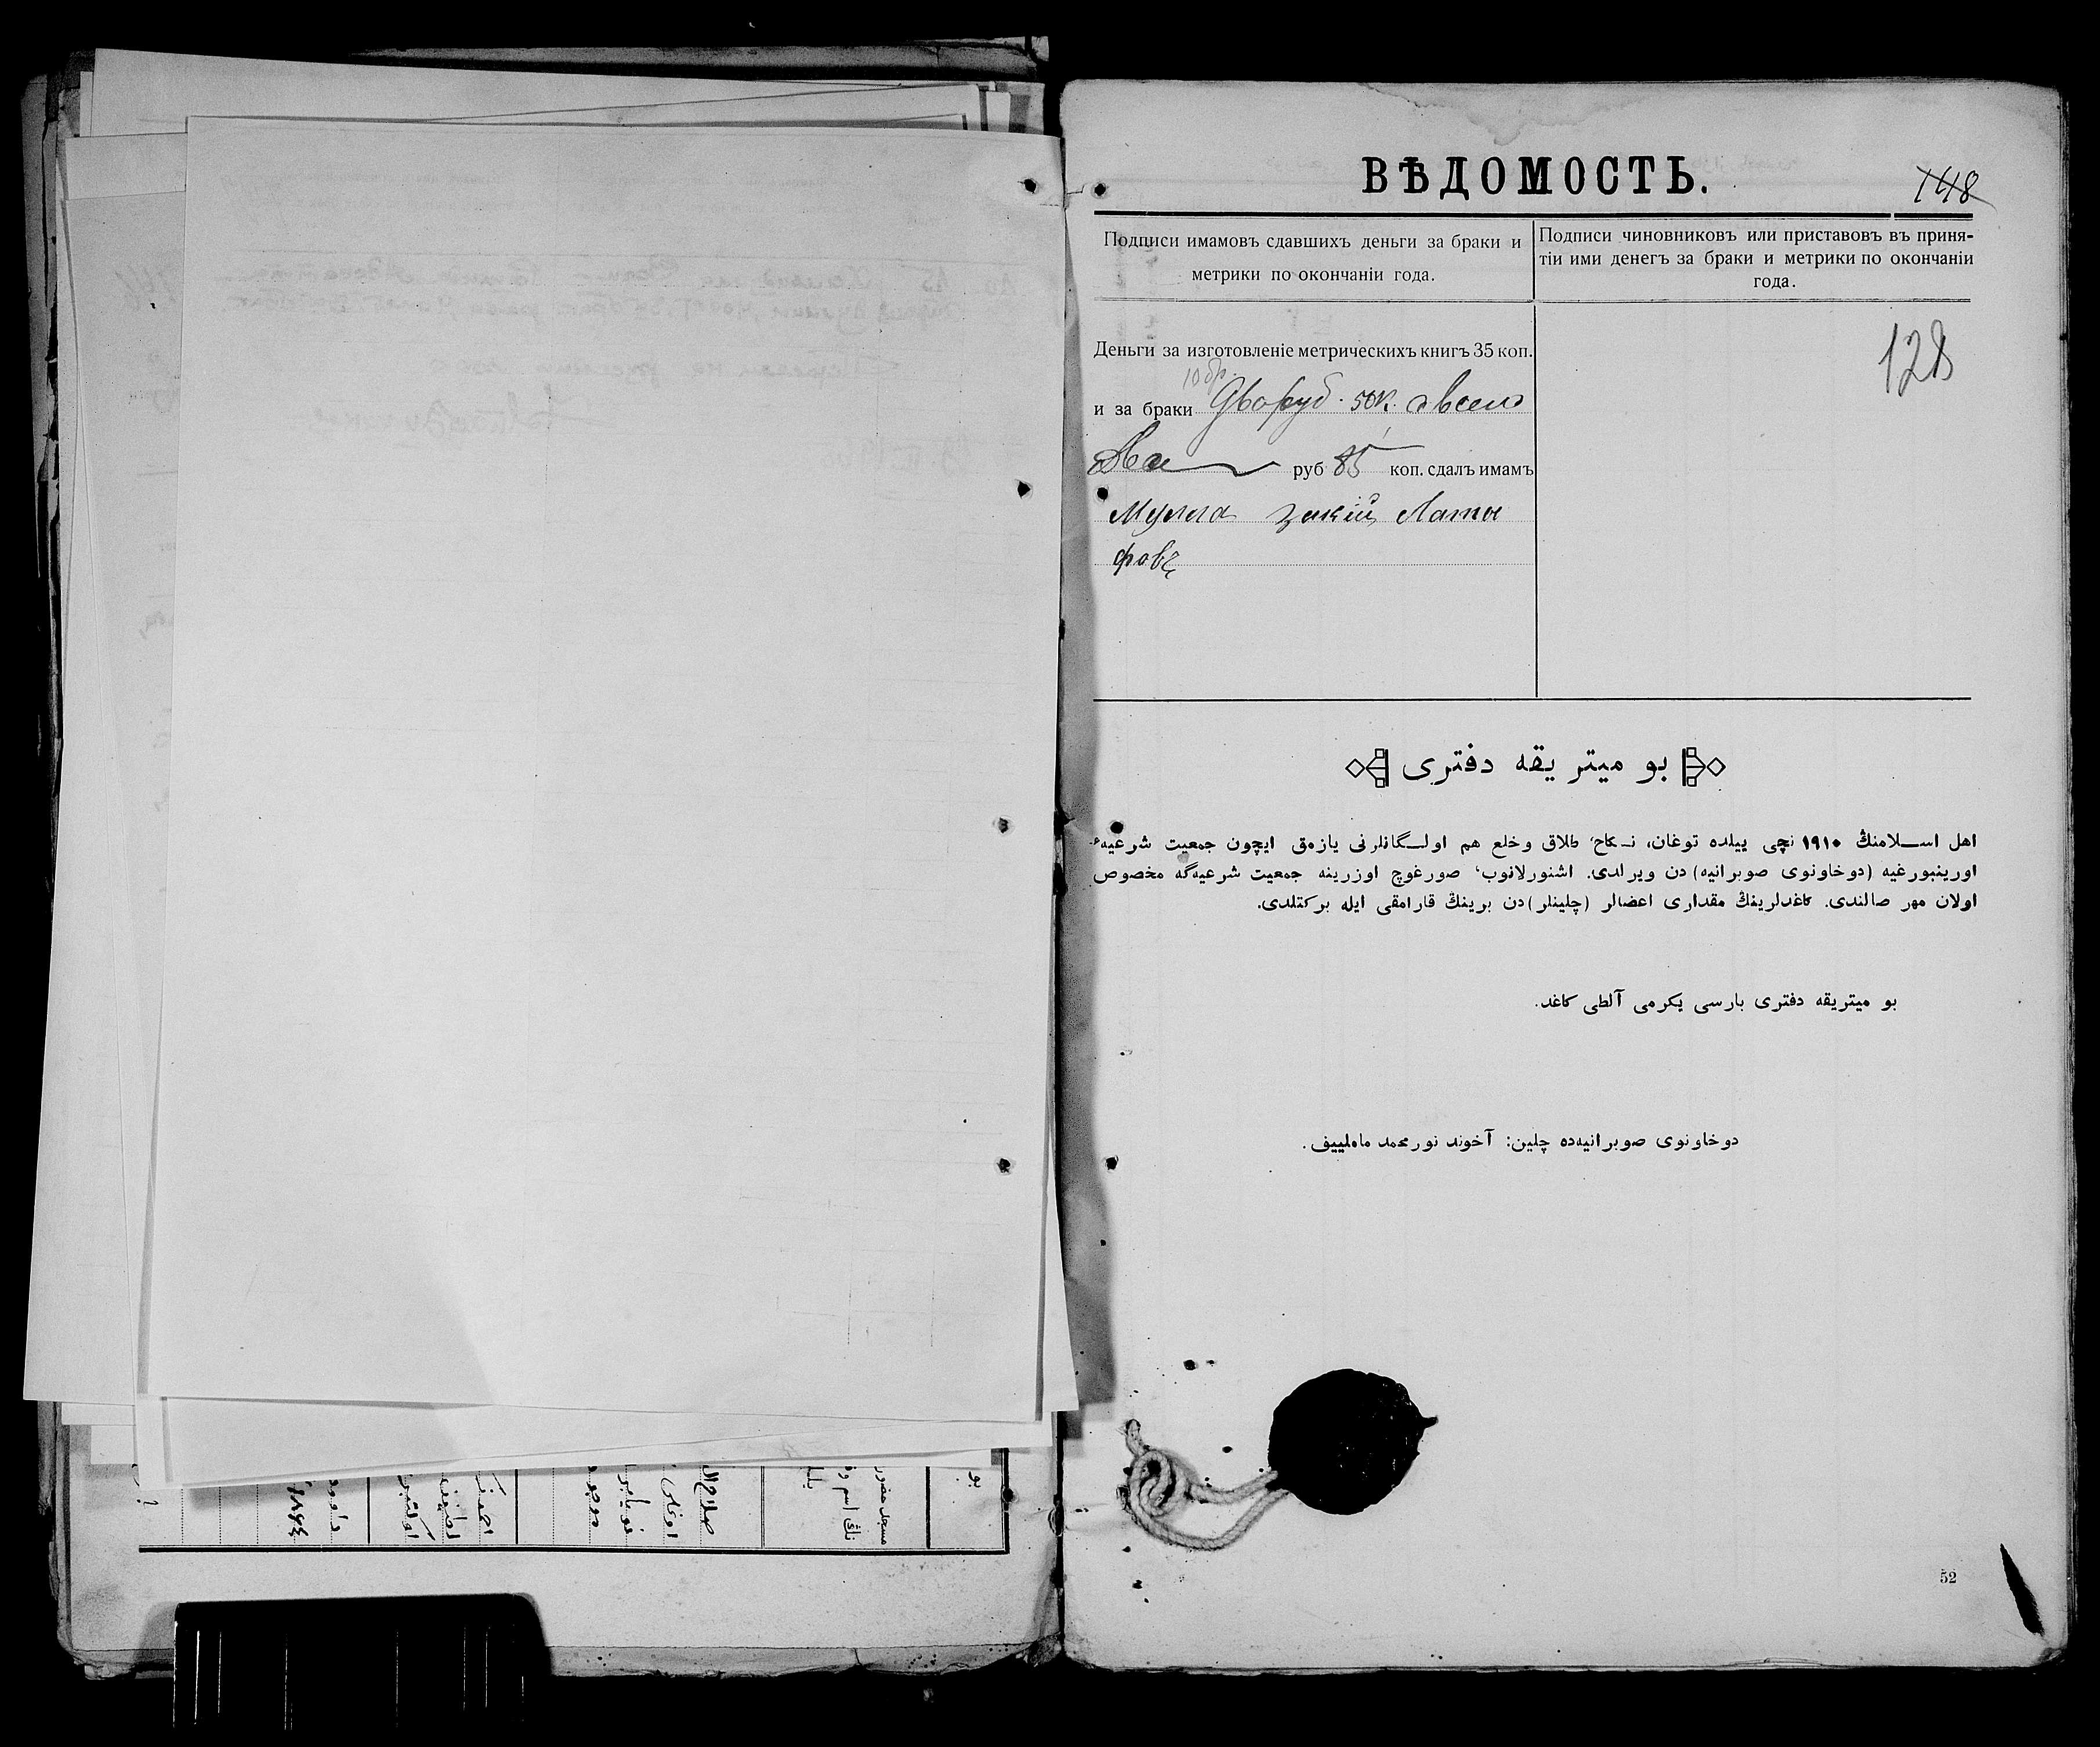 ВѢДОМОСТЬ.
148
Подписи имамовъ сдавшихъ деньги за браки и
метрики по окончаніи года.
Подписи чиновниковъ или приставовъ въ приня-
тіи ими денегъ за браки и метрики по окончаніи
года.
128
Деньги за изготовленіе метрическихъ книгъ 35 коп.
10 бр.
и за браки Два руб. 50 к. а всего
Два руб 85 коп. сдалъ имамъ
Мулла Закій Латы
фовъ
بو ميتر يقه دفترى
اهل اســلامنڭ ۱۹۱۰ نچى ييلده توغان، نـكاح، طلاق وخلع هم اولـگانلرنى يازمق ايچون جمعيت شرعيهٔ
اورينبورغيه (دوخاونوى صوبرانيه) دن ويرلدى. اشنورلانوب، صورغوچ اوزرينه جمعيت شرعيه‌گه مخصوص
اولان مهر صالندى. كاغدلرينڭ مقدارى اعضالر (چلينلر) دن برينڭ قارامقى ايله بركتلدى.
بو ميتريقه دفترى بارسى يكرمى آلطى كاغد.
دوخاونوى صوبرانيه‌ده چلين: آخوند نورمحمد ماملييف.
52